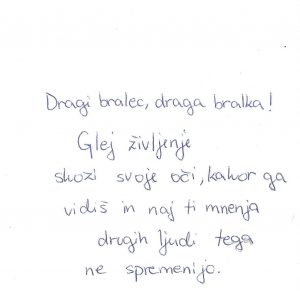 Dragi bralec, draga bralka!
Glej življenje
skozi svoje oči, kakor ga
vidiš in naj ti mnenja
drugih ljudi tega
ne spremenijo.